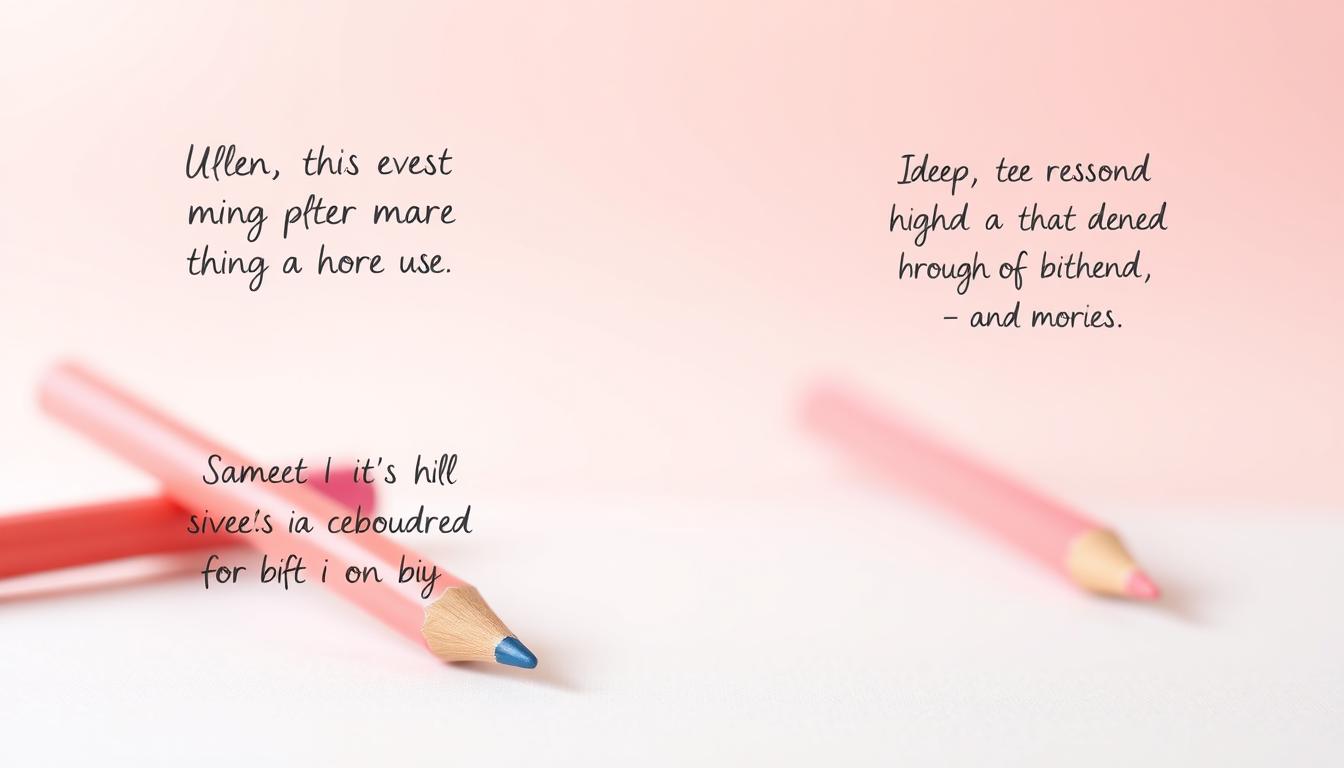 Ullen, this evest
ming pfter mare
thing a hore use.
Ideep, tee ressond
highd a that dened
hrough of bithend,
– and mories.
Sameet I it's hill
sivee!s ia ceboudred
for bift i on biy